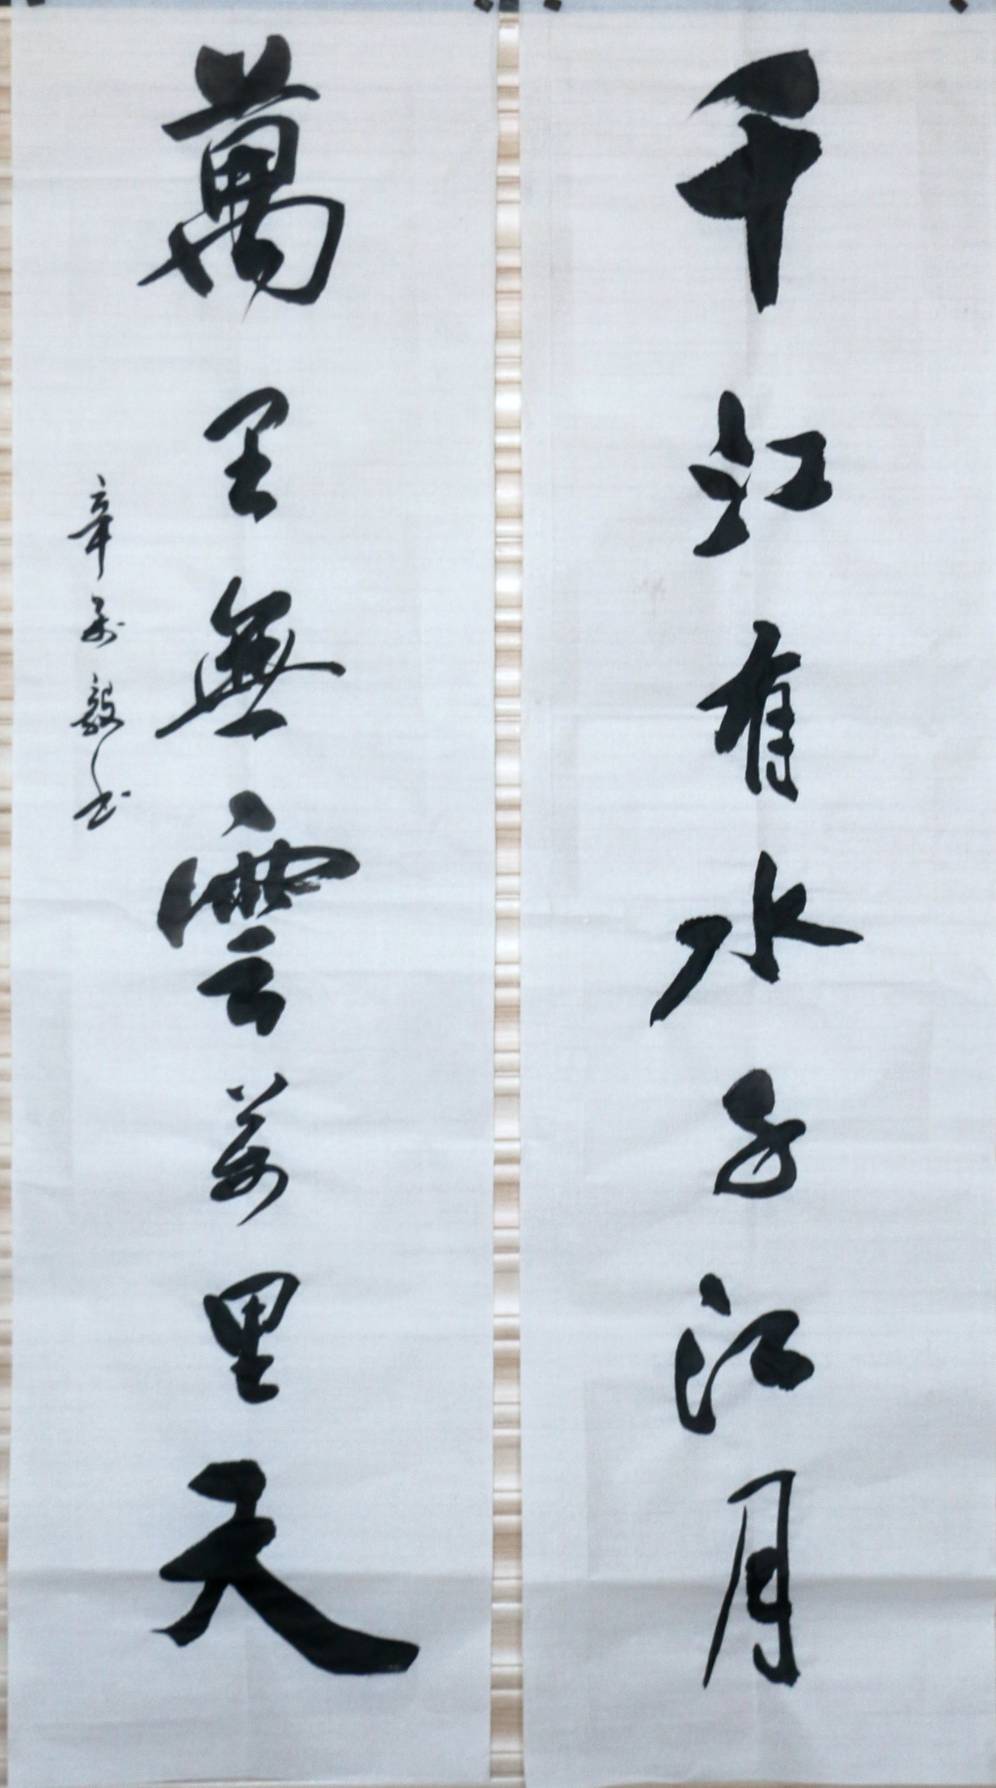 千江有水千江月
萬里無雲萬里天
毅书